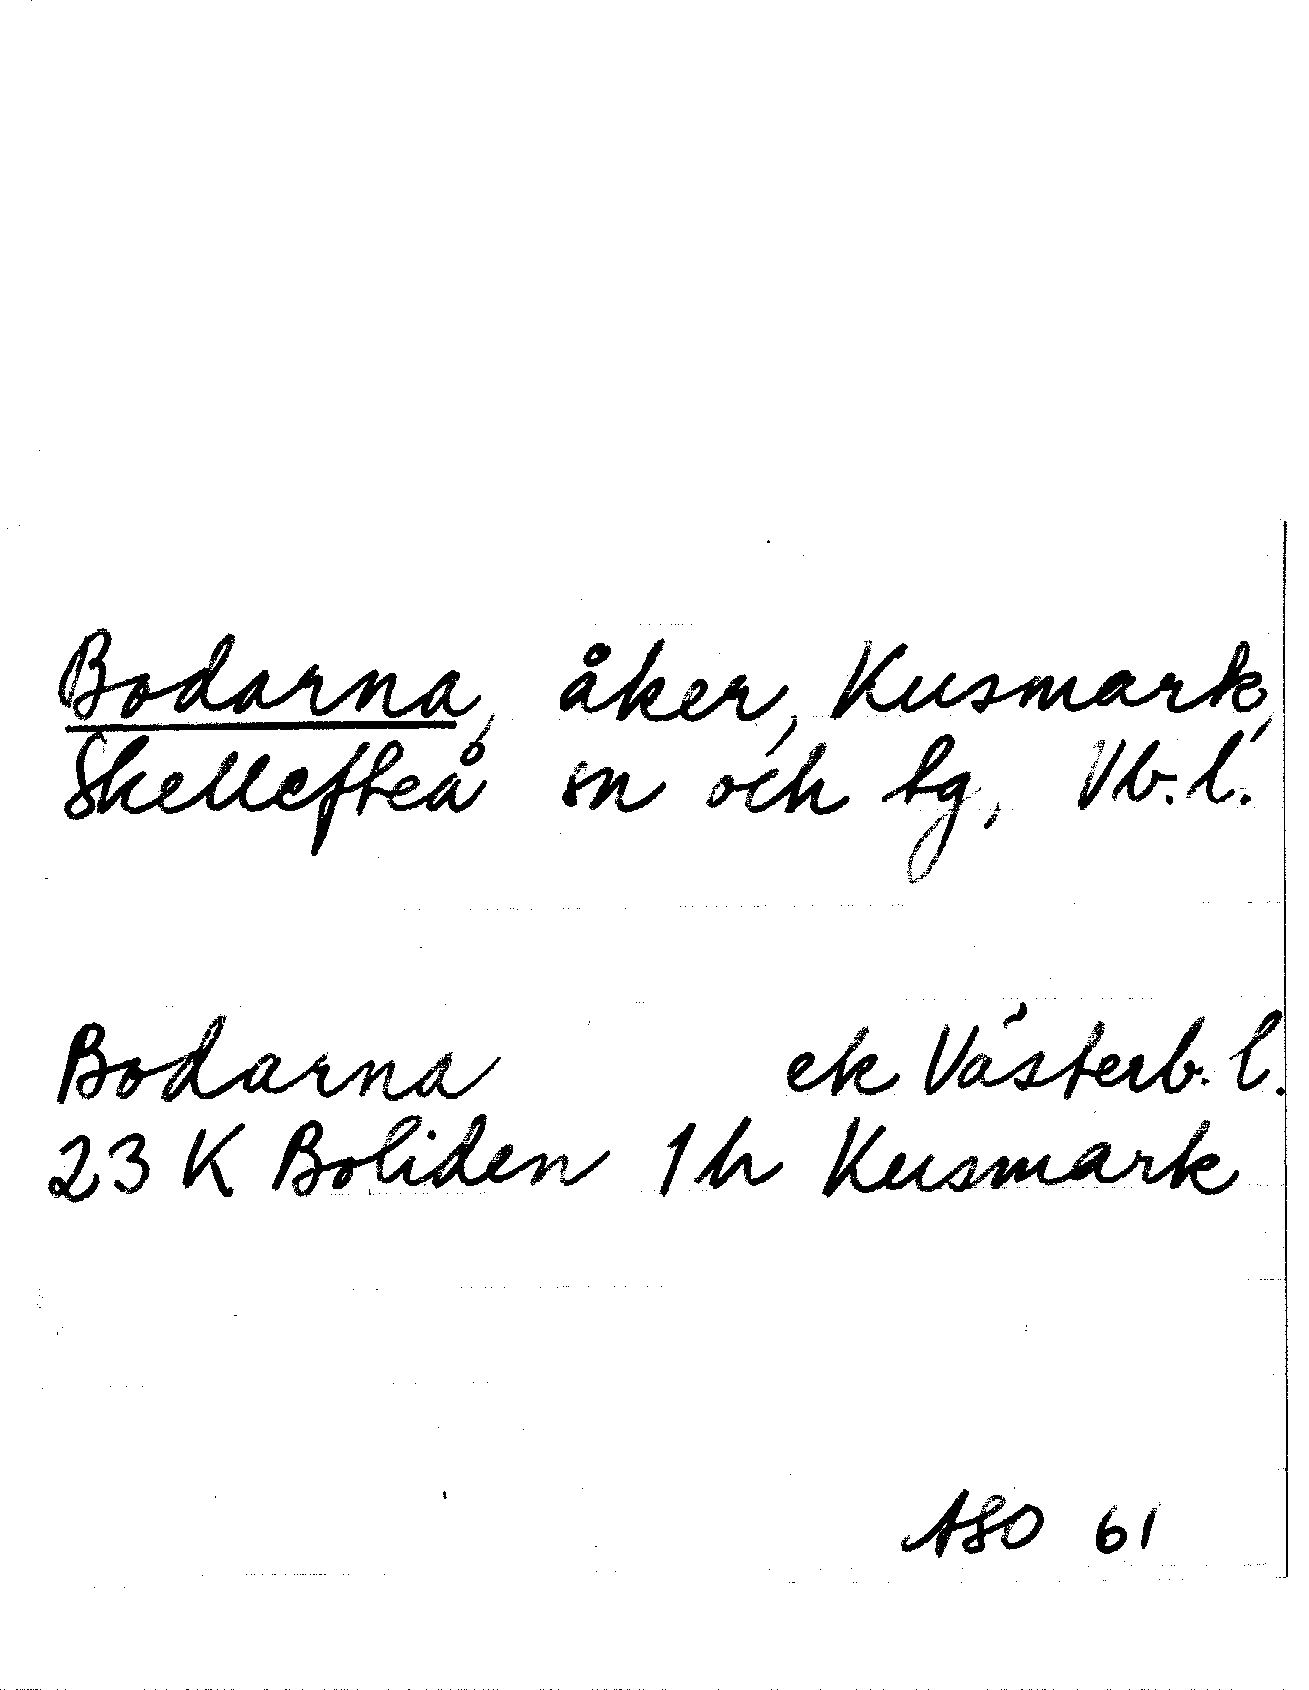 Bodarna, åker, Kusmark,
Skellefteå sn och tg, Vb.l.
Bodarna ek Västerb. l.
23 K Boliden 1h Kusmark
ASO 61